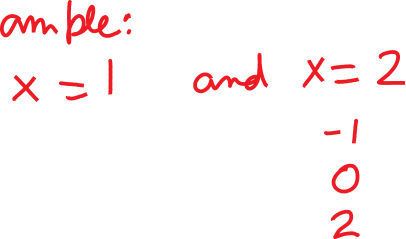 ample:
x = 1 and x = 2
-1
0
2